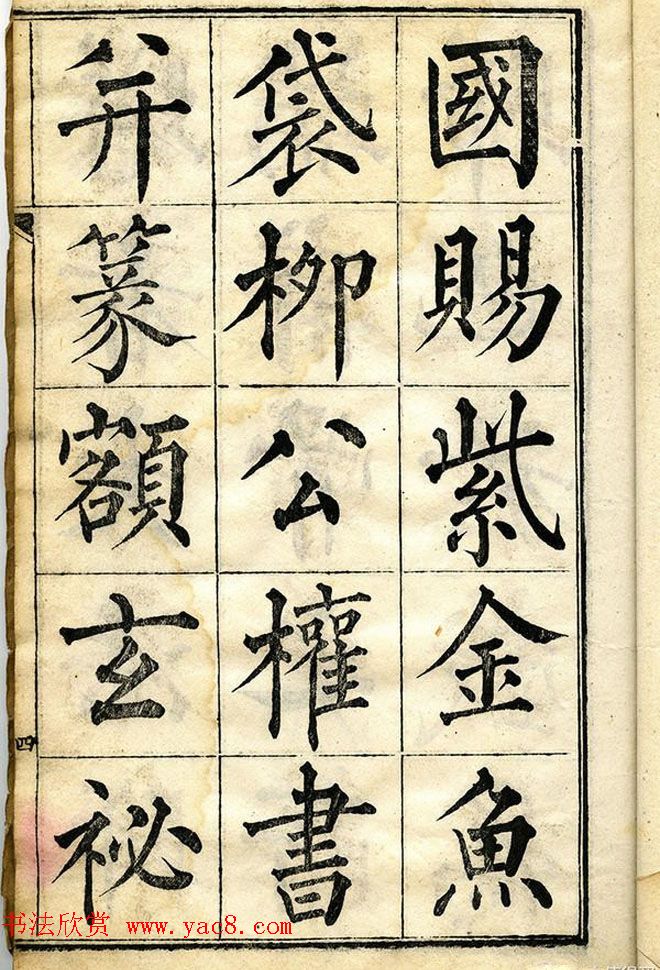 國賜紫金魚
袋柳公權書
并篆額玄
祕
四
书法欣赏 www.yac8.com